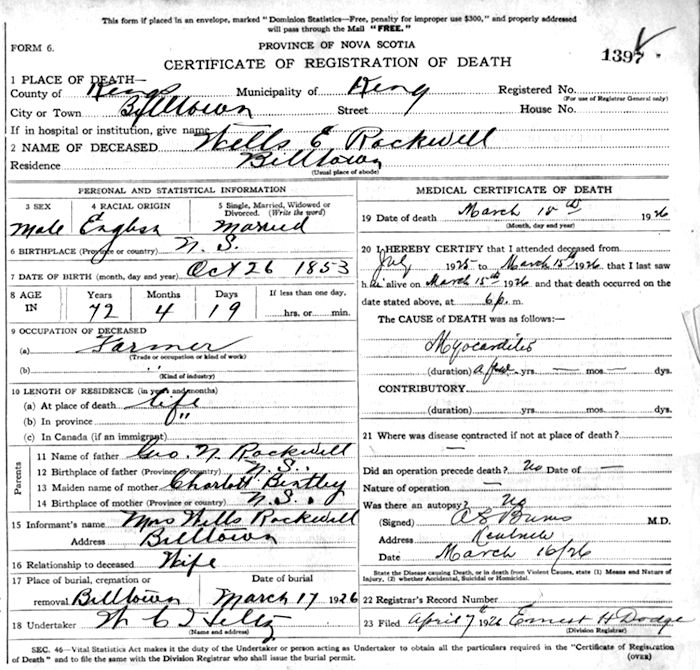 This form if placed in an envelope, marked "Dominion Statistics—Free, penalty for improper use $300," and properly addressed
will pass through the Mail "FREE."
FORM 6.
PROVINCE OF NOVA SCOTIA
CERTIFICATE OF REGISTRATION OF DEATH
1397
1 PLACE OF DEATH—
County of Kings Municipality of Kings Registered No.
(For use of Registrar General only)
City or Town Billtown Street House No.
If in hospital or institution, give name
2 NAME OF DECEASED Wells E Rockwell
Residence Billtown
(Usual place of abode)
PERSONAL AND STATISTICAL INFORMATION
3 SEX 4 RACIAL ORIGIN 5 Single, Married, Widowed or
Divorced. (Write the word)
Male English Married
6 BIRTHPLACE (Province or country) N. S.
7 DATE OF BIRTH (month, day and year) Oct 26 1853
8 AGE IN Years Months Days If less than one day,
72 4 19 hrs. or min.
9 OCCUPATION OF DECEASED
(a) Farmer
(Trade or occupation or kind of work)
(b) "
(Kind of industry)
10 LENGTH OF RESIDENCE (in years and months)
(a) At place of death life
(b) In province "
(c) In Canada (if an immigrant)
Parents
11 Name of father Geo. N. Rockwell
12 Birthplace of father (Province or country) N. S.
13 Maiden name of mother Charlott Bentley
14 Birthplace of mother (Province or country) N. S.
15 Informant's name Mrs Wells Rockwell
Address Billtown
16 Relationship to deceased Wife
17 Place of burial, cremation or Date of burial
removal Billtown March 17 1926
18 Undertaker W. C. T.
(Name and address)
MEDICAL CERTIFICATE OF DEATH
19 Date of death March 15th 1926
(Month, day and year)
20 I HEREBY CERTIFY that I attended deceased from
July 1925 to March 15th 1926 that I last saw
him alive on March 15th 1926 and that death occurred on the
date stated above, at 6 p. m.
The CAUSE of DEATH was as follows:—
Myocarditis
(duration) a few yrs. — mos. — dys.
CONTRIBUTORY
(duration) yrs. mos. dys.
21 Where was disease contracted if not at place of death?
—
Did an operation precede death? No Date of —
Nature of operation —
Was there an autopsy? No
(Signed) Burns M.D.
Address Kentville
Date March 16/26
State the Disease causing Death, or in death from Violent Causes, state (1) Means and Nature of
Injury, (2) whether Accidental, Suicidal or Homicidal.
22 Registrar's Record Number
23 Filed April 7th 1926 Ernest H Dodge
(Division Registrar)
SEC. 46—Vital Statistics Act makes it the duty of the Undertaker or person acting as Undertaker to obtain all the particulars required in the "Certificate of Registration
of Death" and to file the same with the Division Registrar who shall issue the burial permit. (OVER)